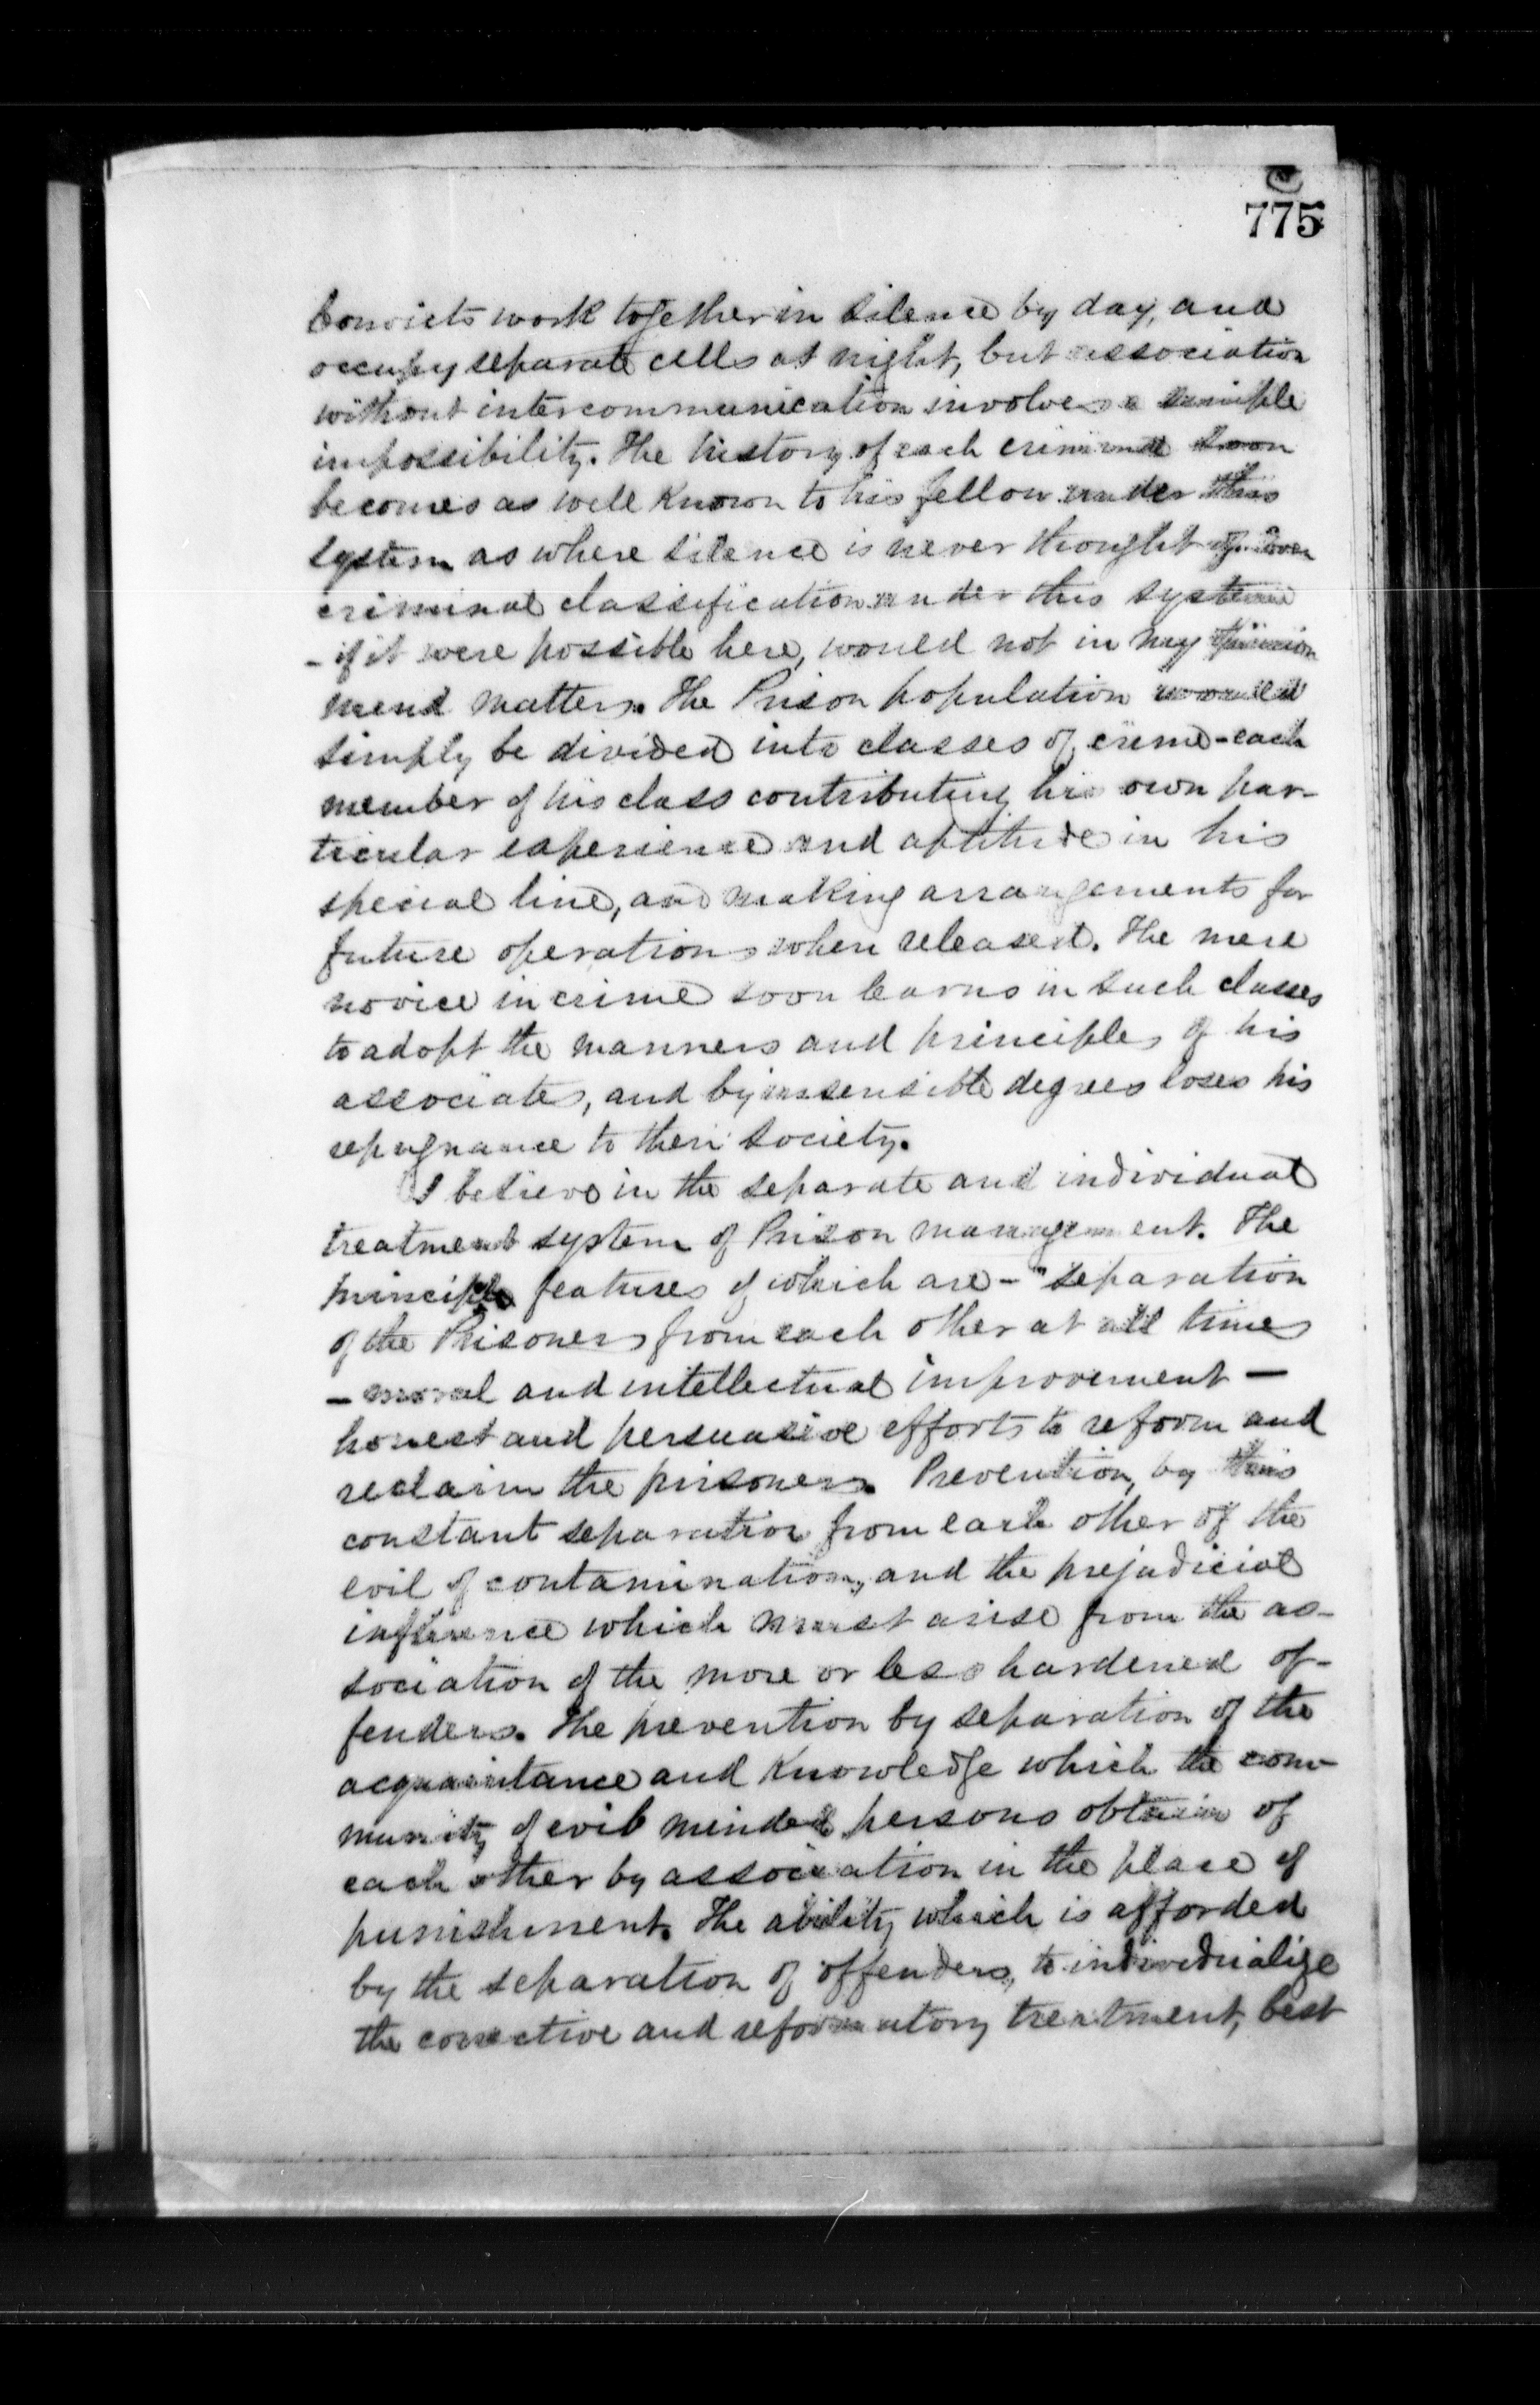 775
Convicts work together in silence by day, and
occupy separate cells at night, but association
without intercommunication involves a simple
impossibility. The history of each criminal soon
becomes as well known to his fellow under this
system as where silence is never thought of. Even
criminal classification under this system
- if it were possible here, would not in my opinion
mend matters. The Prison population would
simply be divided into classes of crime - each
member of his class contributing his own par-
ticular experience and aptitude in his
special line, and making arrangements for
future operations when released. The mere
novice in crime soon learns in such classes
to adopt the manners and principles of his
associates, and by insensible degrees loses his
repugnance to their society.
I believe in the separate and individual
treatment system of Prison management. The
principle features of which are - "separation
of the Prisoners from each other at all times
- moral and intellectual improvement -
honest and persuasive efforts to reform and
reclaim the prisoners. Prevention, by this
constant separation from each other of the
evil of contamination, and the prejudicial
influence which must arise from the as-
sociation of the more or less hardened of-
fenders. The prevention by separation of the
acquaintance and knowledge which the com-
munity of evil minded persons obtain of
each other by association in the place of
punishment. The ability which is afforded
by the separation of offenders, to individualize
the corrective and reformatory treatment, best